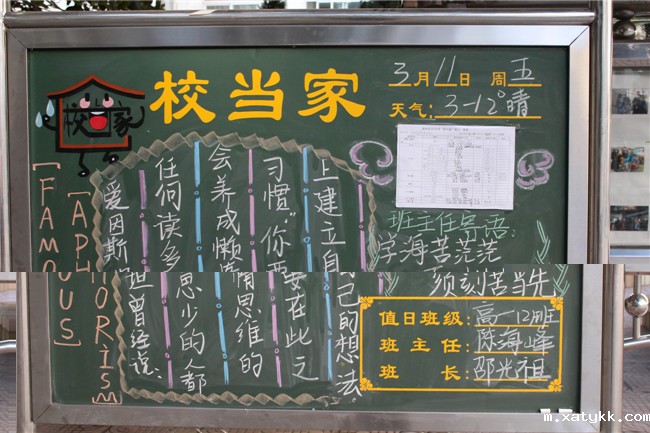 校当家
3月11日 周五
天气: 3-12°晴
校 家
[FAMOUS]
[APHORISM]
爱因斯坦曾经说:
任何读多思少的人都
会养成懒惰思维的
习惯"你要在此之
上建立自己的想法
班主任寄语:
学海苦茫茫
须刻苦当先
值日班级: 高一12班
班主任: 陈海峰
班长: 邵光祖
m.xatykk.com